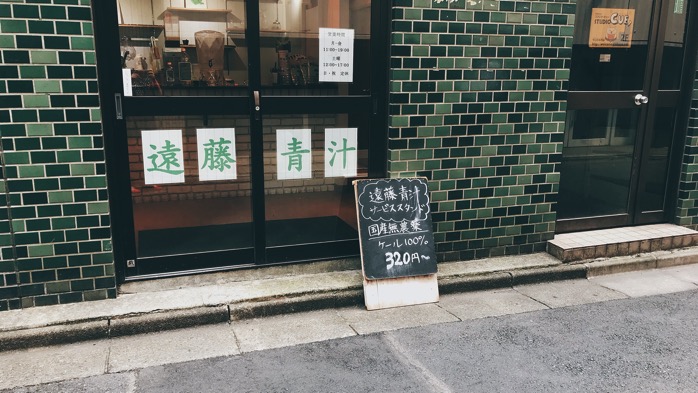 営業時間
月-金
11:00-19:00
土曜
12:00-17:00
日・祝 定休
STUDIO
CUE
遠藤青汁
遠藤青汁
サービススタンド
国産無農薬
ケール100%
320円